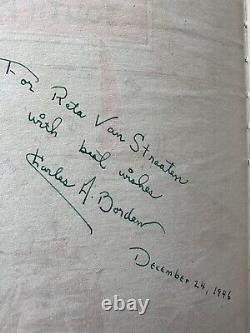 For Reta Van Straaten
with best wishes
Charles A. Borden
December 24, 1946
ebay